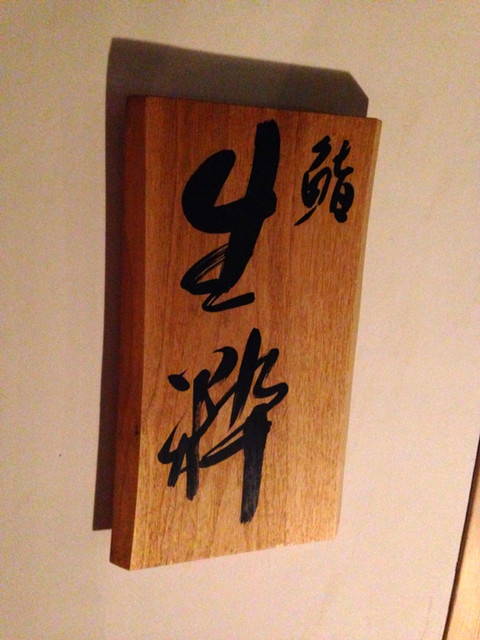 鮨
生粋